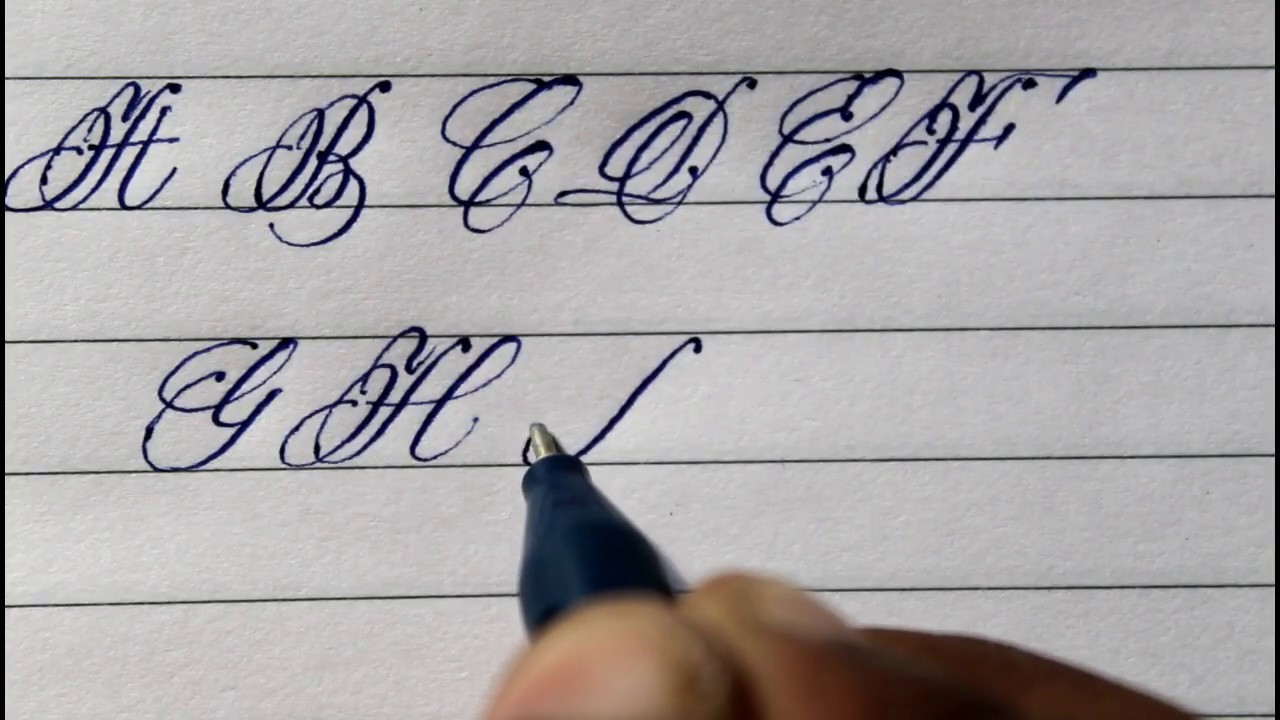 A B C D E F
G H